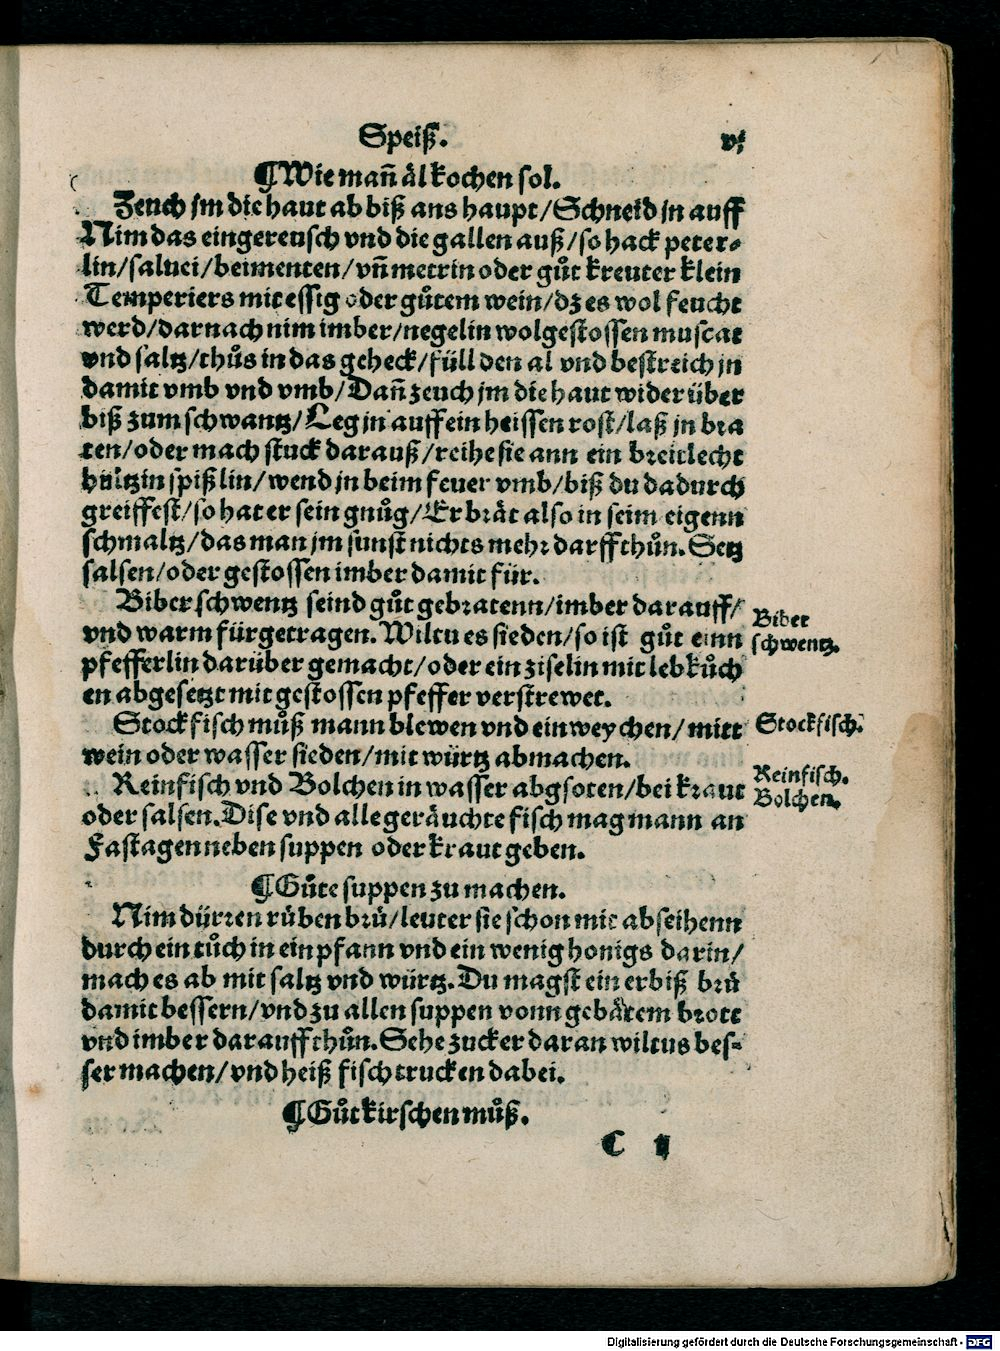 Speiß. vj
¶Wie mañ äl kochen sol.
Zeuch jm die haut ab biß ans haupt/Schneid jn auff
Nim das eingereusch vnd die gallen auß/so hack peter⸗
lin/saluei/beimenten/vñ metrin oder gůt kreuter klein
Temperiers mit essig oder gůtem wein/dz es wol feucht
werd/darnach nim imber/negelin wolgestossen muscat
vnd saltz/thůs in das geheck/füll den al vnd bestreich jn
damit vmb vnd vmb/Dañ zeuch jm die haut wider über
biß zum schwantz/Leg jn auff ein heissen rost/laß jn bra
ten/oder mach stuck darauß/reihe sie ann ein breitlecht
hültzin spißlin/wend jn beim feuer vmb/biß du dadurch
greiffest/so hat er sein gnůg/Er brät also in seim eigenn
schmaltz/das man jm sunst nichts mehr darff thůn. Setz
salsen/oder gestossen imber damit für.
Biber schwentz seind gůt gebratenn/imber darauff/
vnd warm fürgetragen. Wiltu es sieden/so ist gůt einn
pfefferlin darüber gemacht/oder ein ziselin mit lebkůch
en abgesetzt mit gestossen pfeffer verstrewet.
Biber
schwentz.
Stockfisch můß mann blewen vnd einweychen/mitt
wein oder wasser sieden/mit würtz abmachen.
Stockfisch.
Reinfisch vnd Bolchen in wasser abgsoten/bei kraut
oder salsen. Dise vnd alle geräuchte fisch mag mann an
Fastagen neben suppen oder kraut geben.
Reinfisch.
Bolchen.
¶Gůte suppen zu machen.
Nim dürren růben brü/leuter sie schon mit abseihenn
durch ein tůch in ein pfann vnd ein wenig honigs darin/
mach es ab mit saltz vnd würtz. Du magst ein erbiß brü
damit bessern/vnd zu allen suppen vonn gebätem brott
vnd imber darauff thůn. Sehe zucker daran wiltus bes⸗
ser machen/vnd heiß fisch trucken dabei.
¶Gůt kirschen můß.
C ij
Digitalisierung gefördert durch die Deutsche Forschungsgemeinschaft - DFG